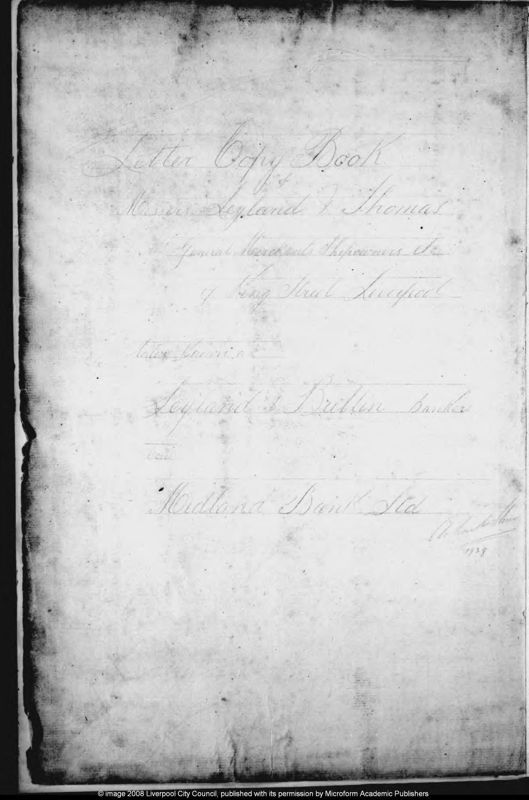 Letter Copy Book
of
Messrs Leyland & Thomas
General Merchants Shipowners etc
17 King Street Liverpool
Leyland & Bullen Bankers
Midland Bank Ltd
© image 2008 Liverpool City Council, published with its permission by Microform Academic Publishers